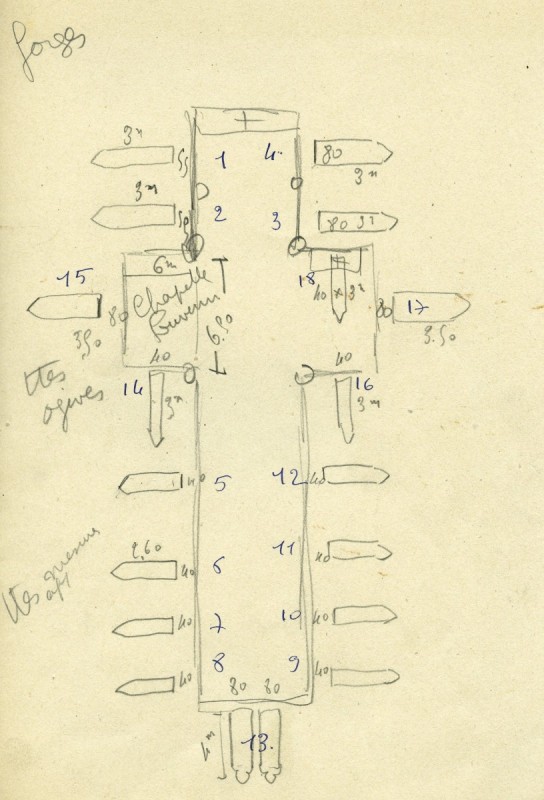 Forges
3m
55
1
4
80
3m
3m
2
3
80 3m
15
6m
18
40 × 3m
17
80
Chapelle
80
3.50
6.50
3.50
40
40
ttes
14
16
ogives
3m
3m
40
5
12
40
11
40
2,60
40
6
ttes
10
40
40
7
8
9
40
40
80
80
4m
13.